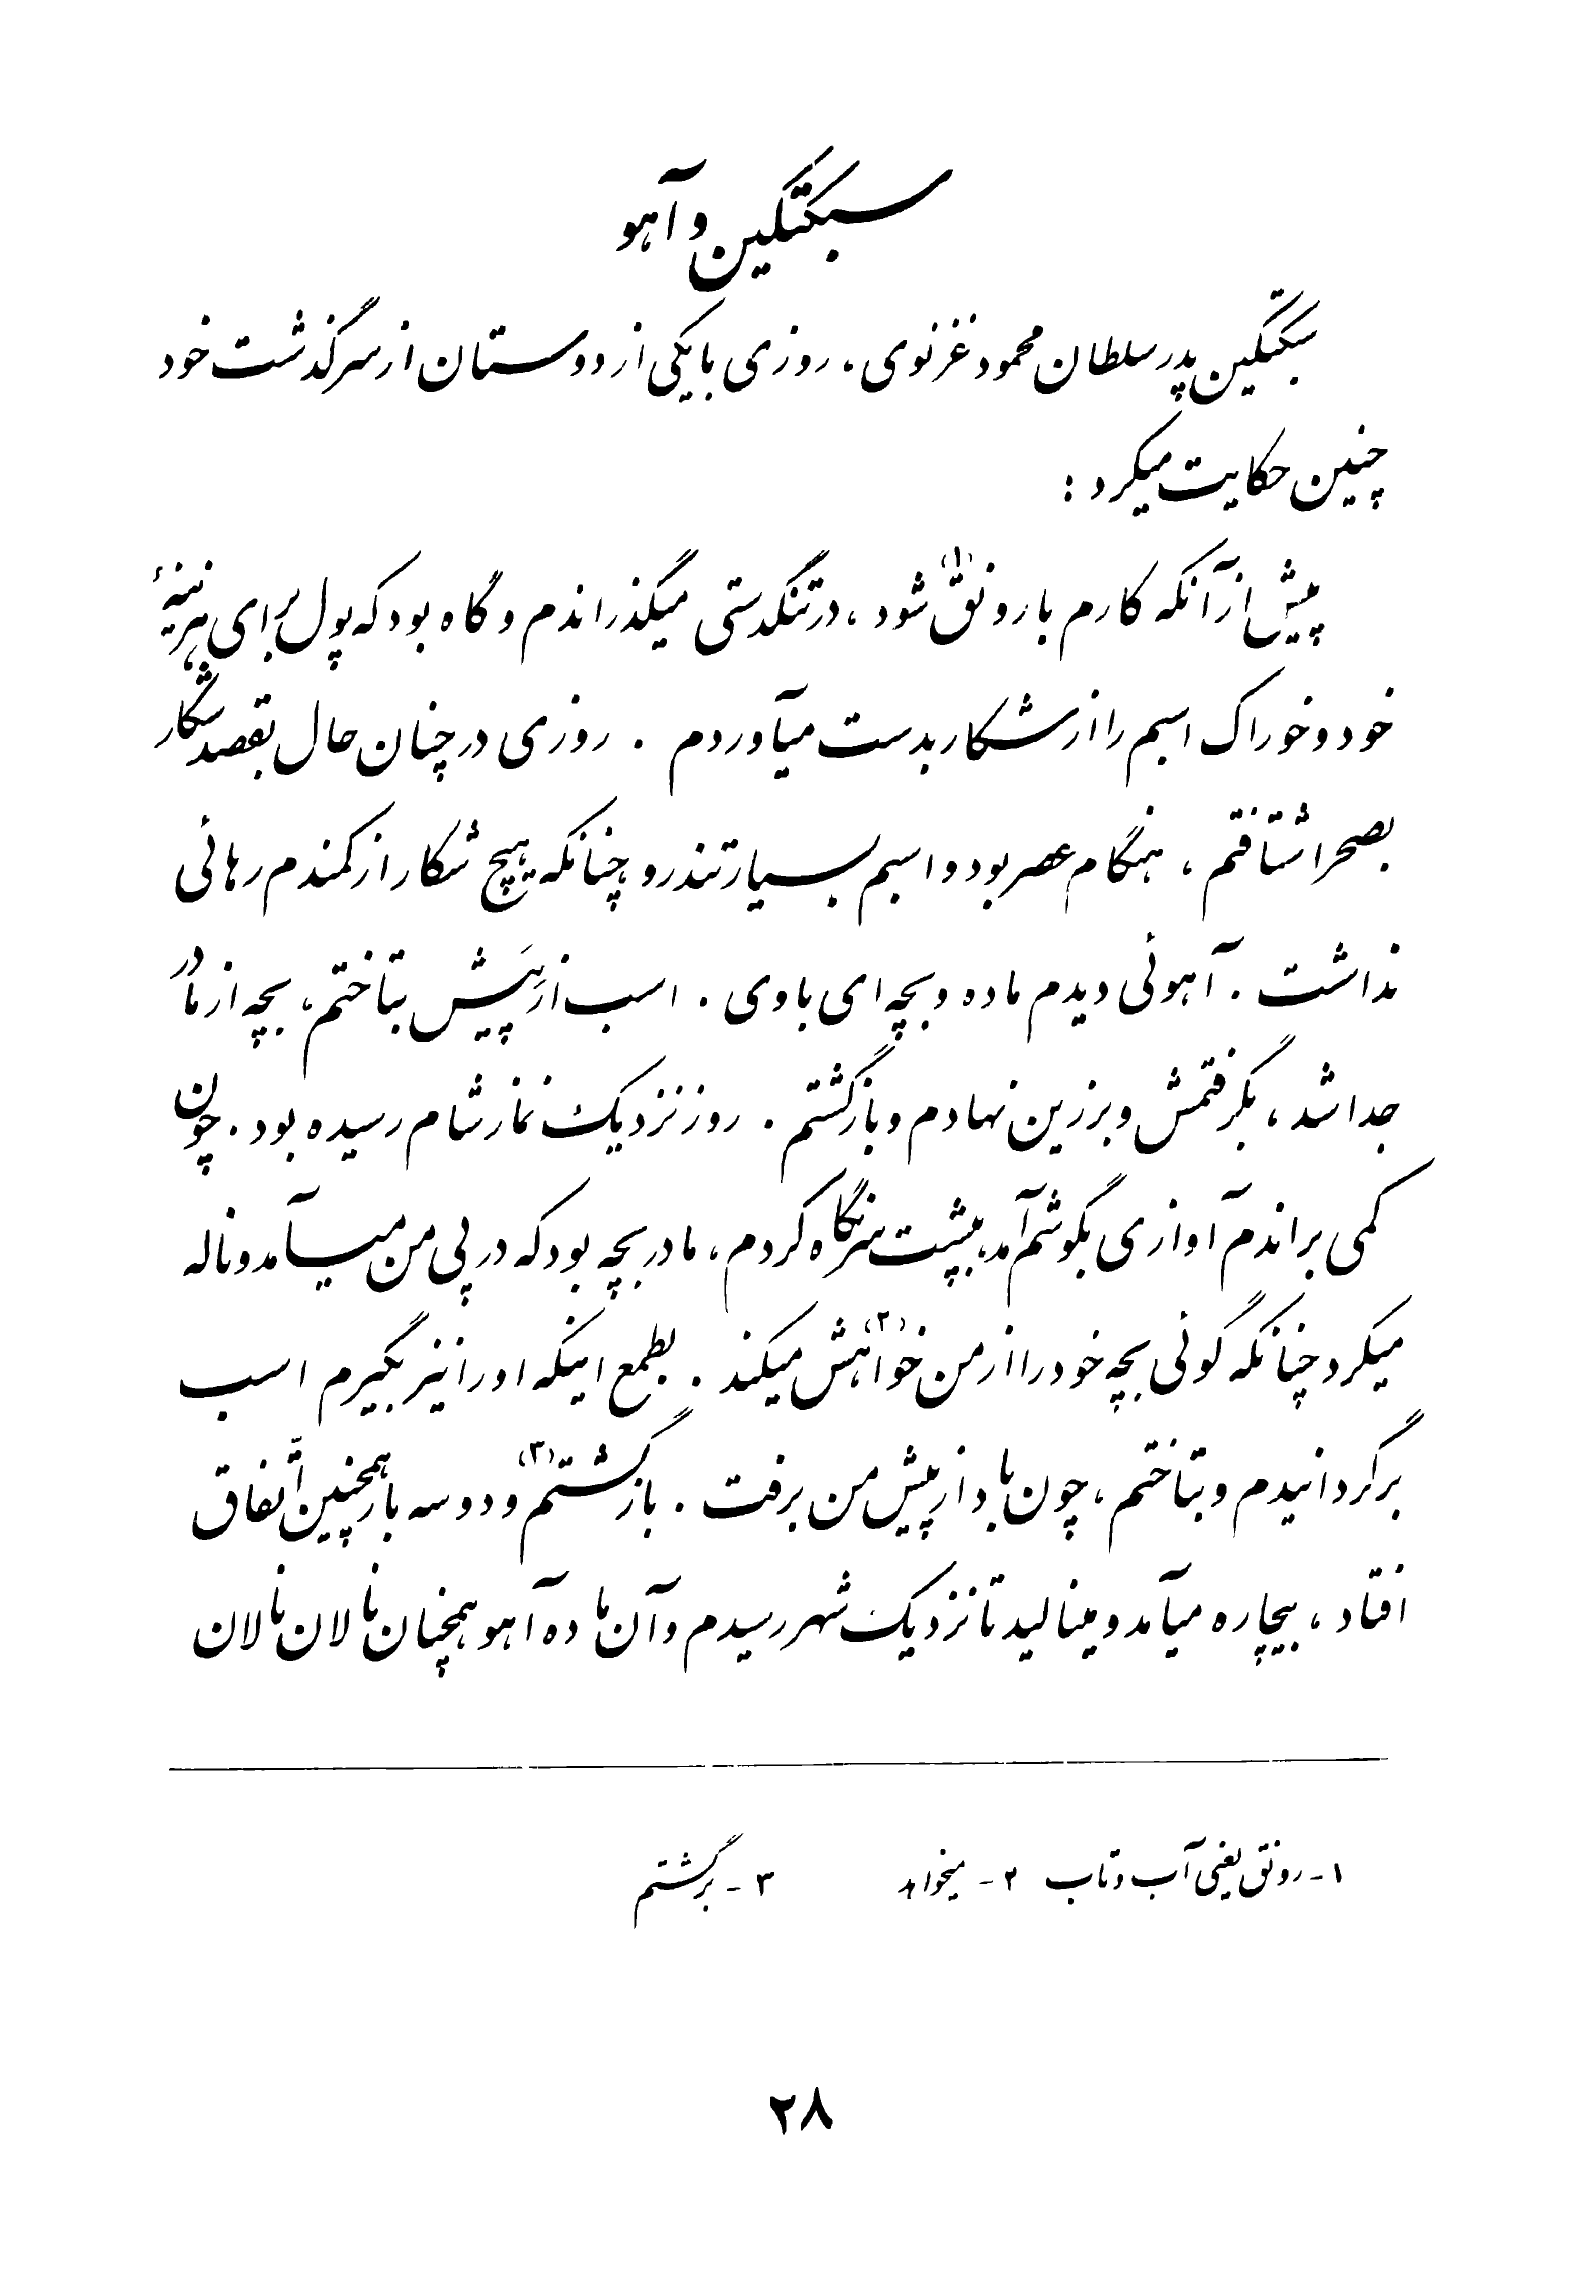 سبکتگین و آهو
سبکتگین پدر سلطان محمود غزنوی ، روزی با یکی از دوستان از سرگذشت خود
چنین حکایت میکرد :
پیش از آنکه کارم با رونق(۱) شود ، در تنگدستی میگذراندم و گاه بود که پول برای هزینهٔ
خود و خوراک اسبم را از شکار بدست میآوردم . روزی در چنان حال بقصد شکار
بصحرا شتافتم ، هنگام عصر بود و اسبم بسیار تندرو چنانکه هیچ شکار از کمندم رهائی
نداشت . آهوئی دیدم ماده و بچه ای با وی . اسب از پیَش بتاختم ، بچه از مادر
جدا شد ، بگرفتمش و بر زین نهادم و بازگشتم . روز نزدیک نماز شام رسیده بود . چون
کمی براندم آوازی بگوشم آمد ، بپشت سر نگاه کردم ، مادر بچه بود که در پی من میآمد و ناله
میکرد چنانکه گوئی بچه خود را از من خواهش(۲) میکند . بطمع اینکه او را نیز بگیرم اسب
برگردانیدم و بتاختم ، چون باد از پیش من برفت . باز گشتم(۳) و دو سه بار همچنین اتّفاق
افتاد ، بیچاره میآمد و مینالید تا نزدیک شهر رسیدم و آن ماده آهو همچنان نالان نالان
۱- رونق یعنی آب و تاب ۲- میخواهد ۳- برگشتم
۲۸